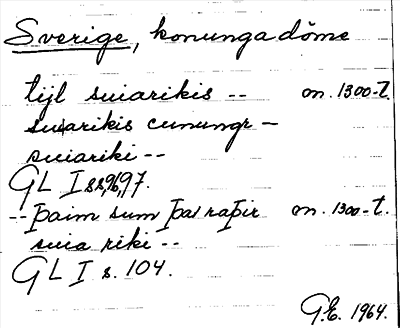 Sverige, konungadöme
tijl suiarikis -- om. 1300-t.
suiarikis cunungr -
suiariki --
GL I ss, 96, 97.
-- þaim sum þar raþir om. 1300-t.
suia riki --
GL I s. 104.
G.E. 1964.